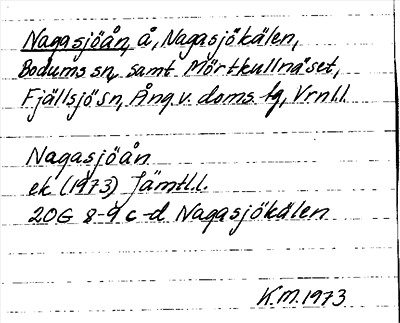 Nagasjöån, å, Nagasjökälen,
Bodums sn, samt Mörtkullnäset,
Fjällsjö sn, Ång. v. doms. tg, Vrnl.l.
Nagasjöån
ek (1973) Jämtl.l.
20G 8-9 c-d Nagasjökälen
K.M. 1973